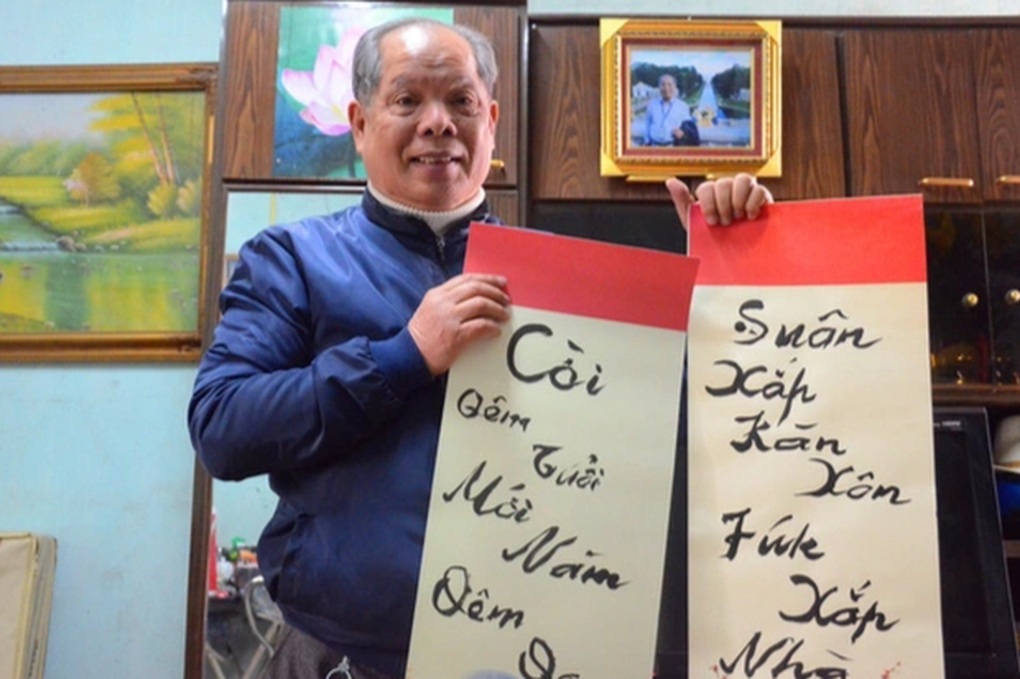 Cời
Qêm
Tuổi
Mới
Năm
Qêm
Suân
Xắp
Kăn
Xôn
Fúk
Xắp
Nhà